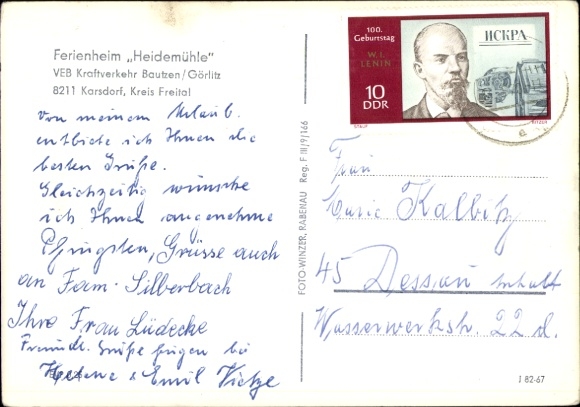 Ferienheim „Heidemühle"
VEB Kraftverkehr Bautzen/Görlitz
8211 Karsdorf, Kreis Freital
Von meinem Urlaub
entbiete ich Ihnen die
besten Grüße.
Gleichzeitig wünsche
ich Ihnen angenehme
Pfingsten, Grüsse auch
an Fam. Silberbach
Ihre Frau Lüdecke
Freundl. Grüße fügen bei
Helene & Emil
FOTO-WINZER, RABENAU Reg. F III/9/166
100.
Geburtstag
W. I.
LENIN
ИСКРА
10
DDR
Frau
Marie Kalbitz
45 Dessau Anhalt
Wasserwerkstr. 22 d.
J 82-67